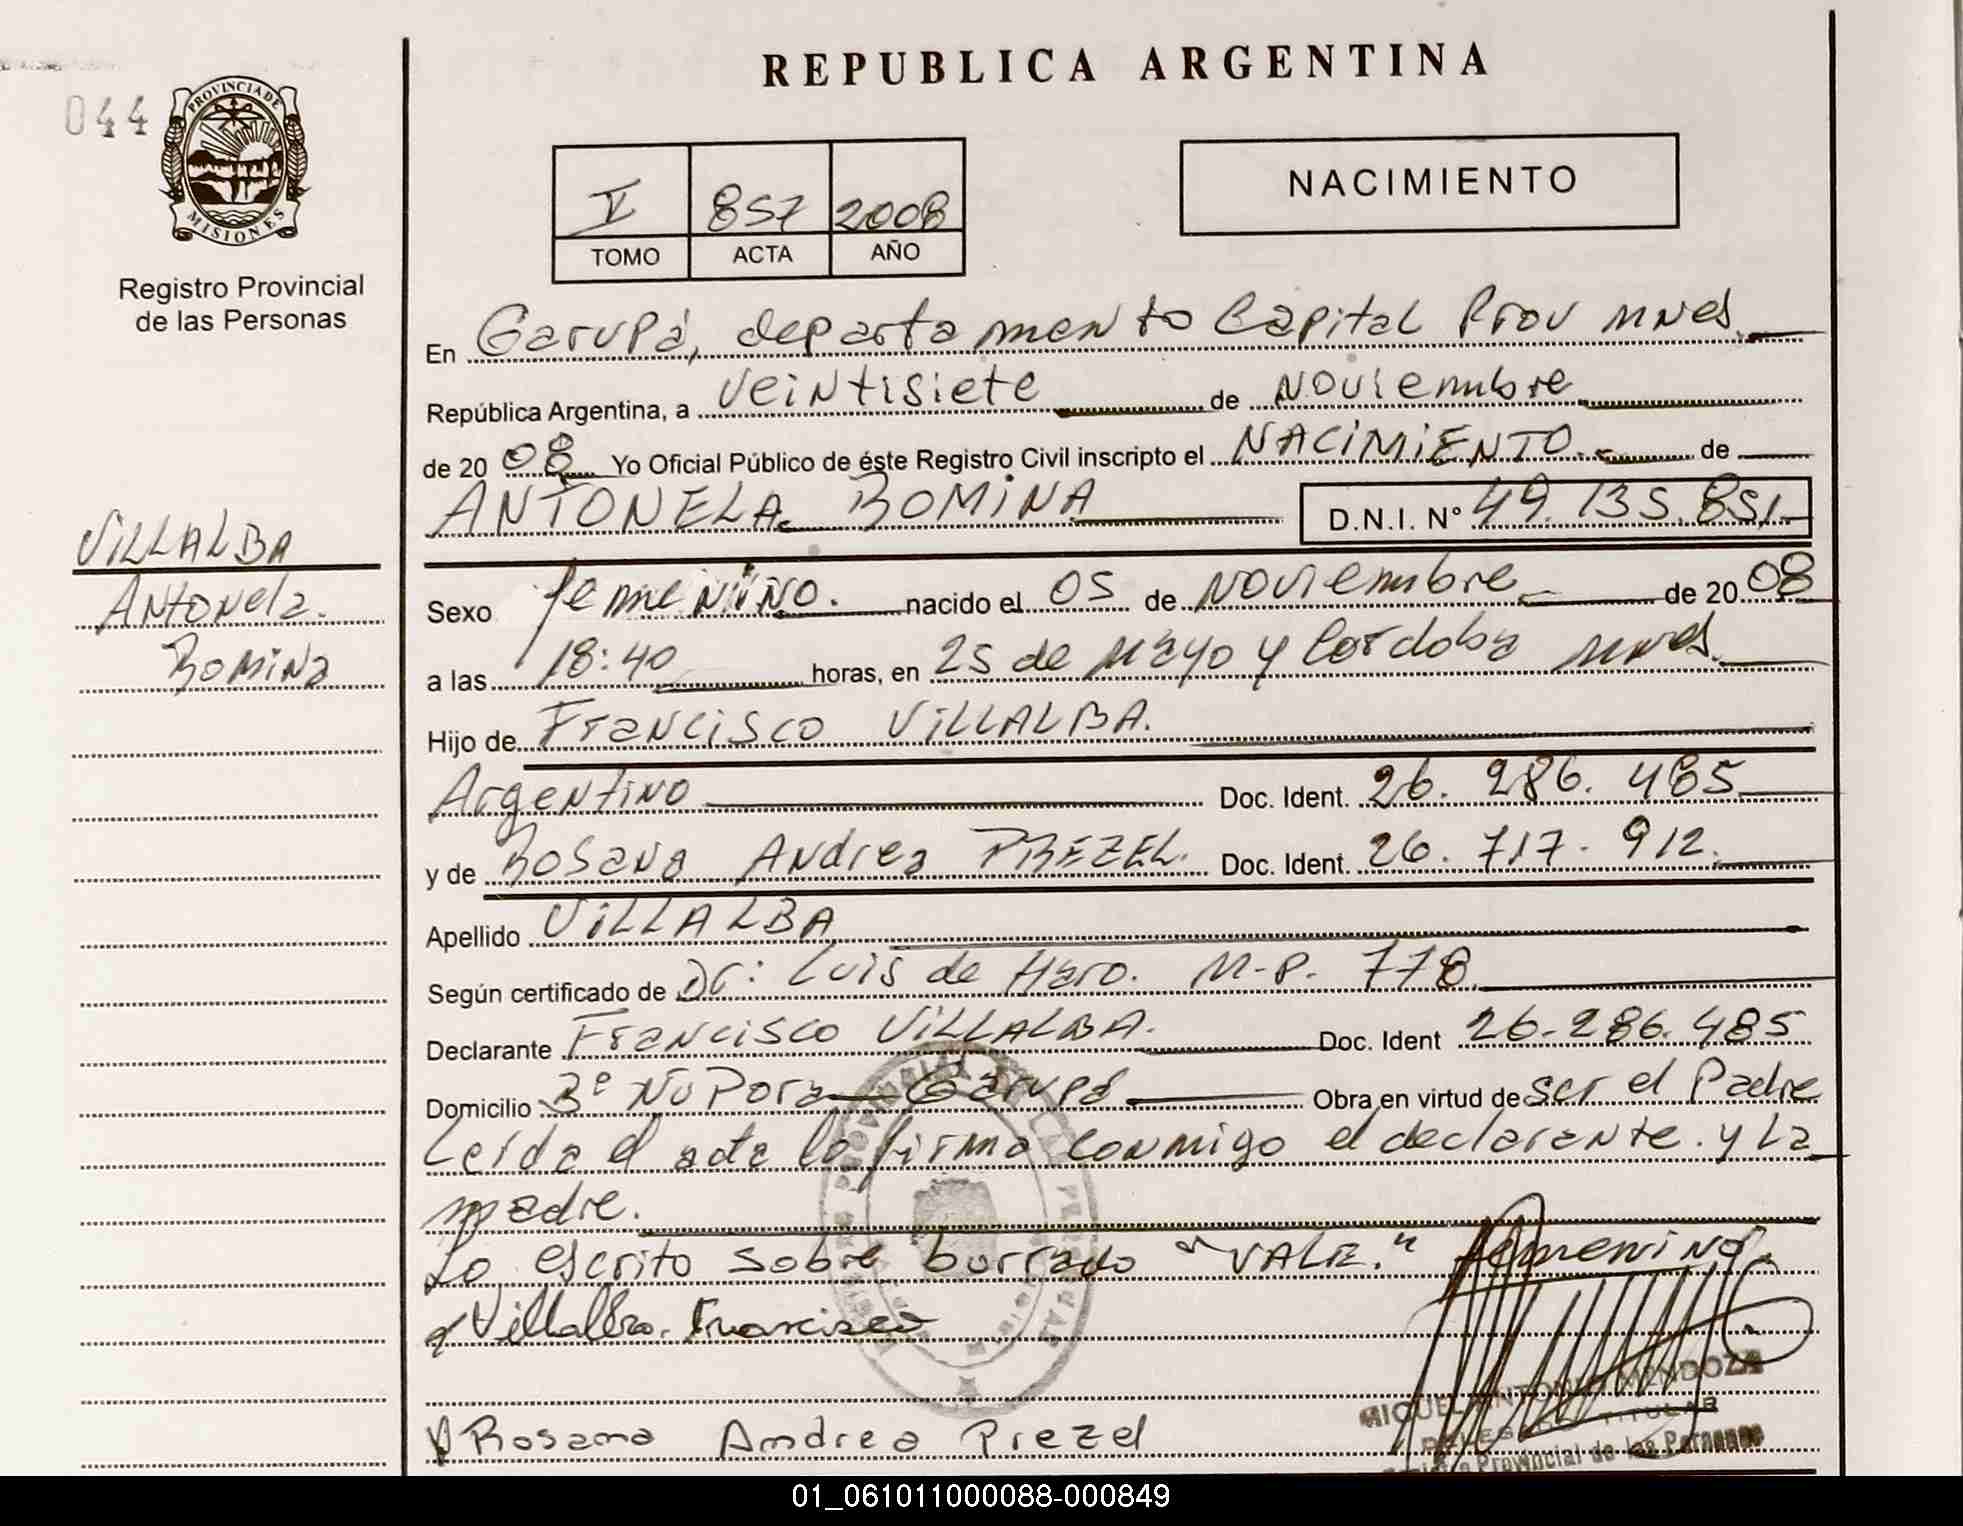 REPUBLICA ARGENTINA
044
PROVINCIA DE
MISIONES
Registro Provincial
de las Personas
V 857 2008
TOMO ACTA AÑO
NACIMIENTO
En Garupá, departamento Capital Prov Mnes.
República Argentina, a veintisiete de noviembre
de 20 08 Yo Oficial Público de éste Registro Civil inscripto el NACIMIENTO. de
ANTONELA ROMINA D.N.I. N° 49.135.851.
VILLALBA
Antonela.
Romina
Sexo femenino. nacido el 05 de noviembre de 20 08
a las 18:40 horas, en 25 de Mayo y Cordoba Mnes.
Hijo de Francisco VILLALBA.
Argentino Doc. Ident. 26.286.485
y de Rosana Andrea PREZEL. Doc. Ident. 26.717.912.
Apellido VILLALBA
Según certificado de Dr: Luis de Haro. M-P. 778.
Declarante Francisco VILLALBA. Doc. Ident 26.286.485
Domicilio Bº Ñu Pora Garupá Obra en virtud de ser el Padre
Leída el acta la firma conmigo el declarante. y La
madre.
Lo escrito sobre borrado "VALE." femenino.
Villalba. Francisco
MIGUEL ANTONIO MENDOZA
TITULAR
Rosana Andrea Prezel
Provincial de las Personas
01_061011000088-000849